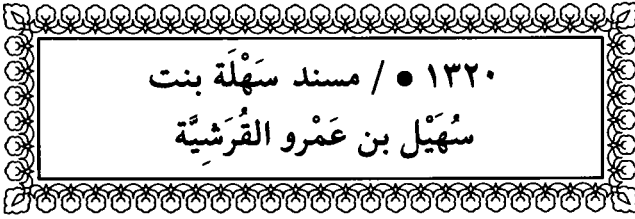 ١٣٢٠ • / مسند سَهْلَة بنت
سُهَيْل بن عَمْرو القُرَشِيَّة